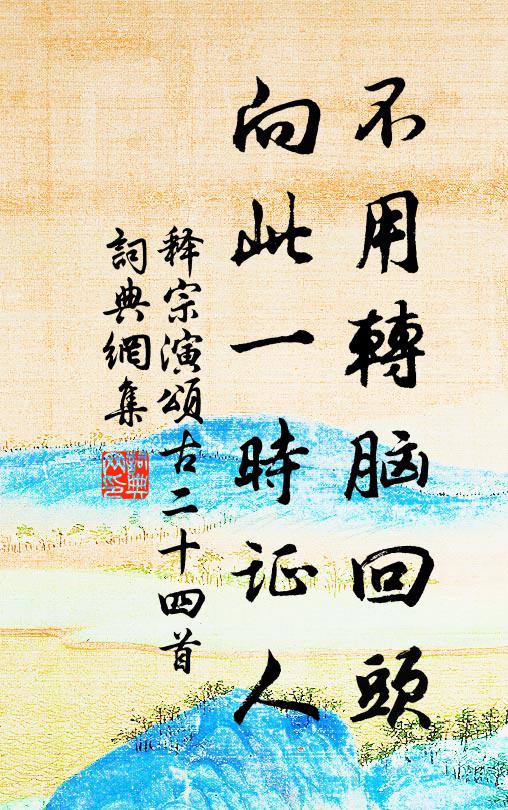 不用轉脑回頭
向此一時证人
释宗演頌古二十四首
詞典網集
詞典